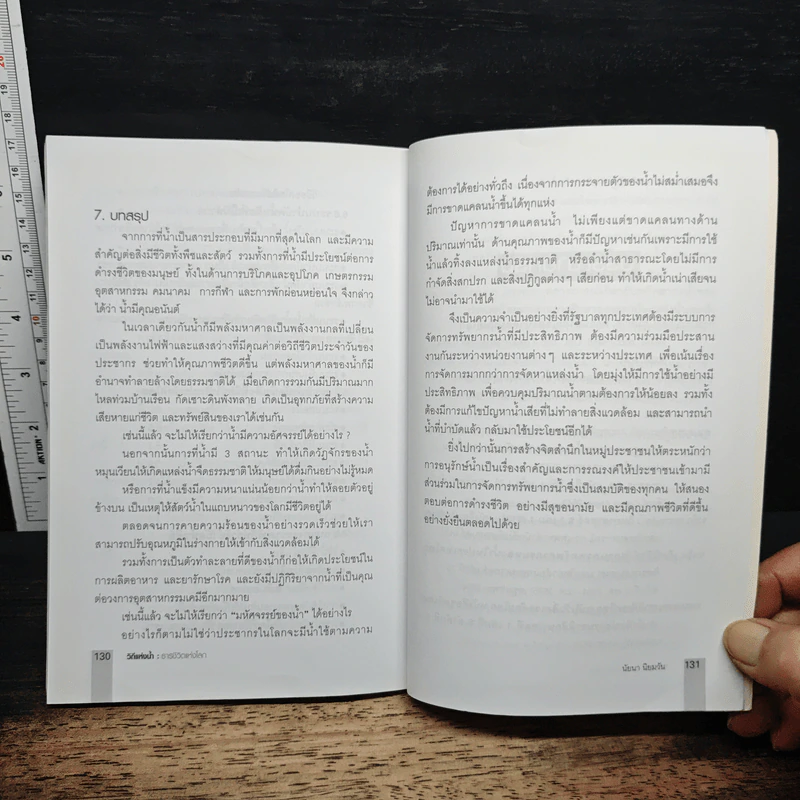 7. บทสรุป
จากการที่น้ำเป็นสารประกอบที่มีมากที่สุดในโลก และมีความ
สำคัญต่อสิ่งมีชีวิตทั้งพืชและสัตว์ รวมทั้งการที่น้ำมีประโยชน์ต่อการ
ดำรงชีวิตของมนุษย์ ทั้งในด้านการบริโภคและอุปโภค เกษตรกรรม
อุตสาหกรรม คมนาคม การกีฬา และการพักผ่อนหย่อนใจ จึงกล่าว
ได้ว่า น้ำมีคุณอนันต์
ในเวลาเดียวกันน้ำก็มีพลังมหาศาลเป็นพลังงานกลที่เปลี่ยน
เป็นพลังงานไฟฟ้าและแสงสว่างที่มีคุณค่าต่อวิถีชีวิตประจำวันของ
ประชากร ช่วยทำให้คุณภาพชีวิตดีขึ้น แต่พลังมหาศาลของน้ำก็มี
อำนาจทำลายล้างโดยธรรมชาติได้ เมื่อเกิดการรวมกันมีปริมาณมาก
ไหลท่วมบ้านเรือน กัดเซาะดินพังทลาย เกิดเป็นอุทกภัยที่สร้างความ
เสียหายแก่ชีวิต และทรัพย์สินของเราได้เช่นกัน
เช่นนี้แล้ว จะไม่ให้เรียกว่าน้ำมีความอัศจรรย์ได้อย่างไร ?
นอกจากนั้นการที่น้ำมี 3 สถานะ ทำให้เกิดวัฏจักรของน้ำ
หมุนเวียนให้เกิดแหล่งน้ำจืดธรรมชาติให้มนุษย์ได้ดื่มกินอย่างไม่รู้หมด
หรือการที่น้ำแข็งมีความหนาแน่นน้อยกว่าน้ำทำให้ลอยตัวอยู่
ข้างบน เป็นเหตุให้สัตว์น้ำในแถบหนาวของโลกมีชีวิตอยู่ได้
ตลอดจนการคายความร้อนของน้ำอย่างรวดเร็วช่วยให้เรา
สามารถปรับอุณหภูมิในร่างกายให้เข้ากับสิ่งแวดล้อมได้
รวมทั้งการเป็นตัวทำละลายที่ดีของน้ำก็ก่อให้เกิดประโยชน์ใน
การผลิตอาหาร และยารักษาโรค และยังมีปฏิกิริยาจากน้ำที่เป็นคุณ
ต่อวงการอุตสาหกรรมเคมีอีกมากมาย
เช่นนี้แล้ว จะไม่ให้เรียกว่า “มหัศจรรย์ของน้ำ” ได้อย่างไร
อย่างไรก็ตามไม่ใช่ว่าประชากรในโลกจะมีน้ำใช้ตามความ
130 วิถีแห่งน้ำ : ธารชีวิตแห่งโลก
ต้องการได้อย่างทั่วถึง เนื่องจากการกระจายตัวของน้ำไม่สม่ำเสมอจึง
มีการขาดแคลนน้ำขึ้นได้ทุกแห่ง
ปัญหาการขาดแคลนน้ำ ไม่เพียงแต่ขาดแคลนทางด้าน
ปริมาณเท่านั้น ด้านคุณภาพของน้ำก็มีปัญหาเช่นกันเพราะมีการใช้
น้ำแล้วทิ้งลงแหล่งน้ำธรรมชาติ หรือลำน้ำสาธารณะโดยไม่มีการ
กำจัดสิ่งสกปรก และสิ่งปฏิกูลต่างๆ เสียก่อน ทำให้เกิดน้ำเน่าเสียจน
ไม่อาจนำมาใช้ได้
จึงเป็นความจำเป็นอย่างยิ่งที่รัฐบาลทุกประเทศต้องมีระบบการ
จัดการทรัพยากรน้ำที่มีประสิทธิภาพ ต้องมีความร่วมมือประสาน
งานกันระหว่างหน่วยงานต่างๆ และระหว่างประเทศ เพื่อเน้นเรื่อง
การจัดการมากกว่าการจัดหาแหล่งน้ำ โดยมุ่งให้มีการใช้น้ำอย่างมี
ประสิทธิภาพ เพื่อควบคุมปริมาณน้ำตามต้องการให้น้อยลง รวมทั้ง
ต้องมีการแก้ไขปัญหาน้ำเสียที่ไม่ทำลายสิ่งแวดล้อม และสามารถนำ
น้ำที่บำบัดแล้ว กลับมาใช้ประโยชน์อีกได้
ยิ่งไปกว่านั้นการสร้างจิตสำนึกในหมู่ประชาชนให้ตระหนักว่า
การอนุรักษ์น้ำเป็นเรื่องสำคัญและการรณรงค์ให้ประชาชนเข้ามามี
ส่วนร่วมในการจัดการทรัพยากรน้ำซึ่งเป็นสมบัติของทุกคน ให้สนอง
ตอบต่อการดำรงชีวิต อย่างมีสุขอนามัย และมีคุณภาพชีวิตที่ดีขึ้น
อย่างยั่งยืนตลอดไปด้วย
นัยนา นิยมวัน 131